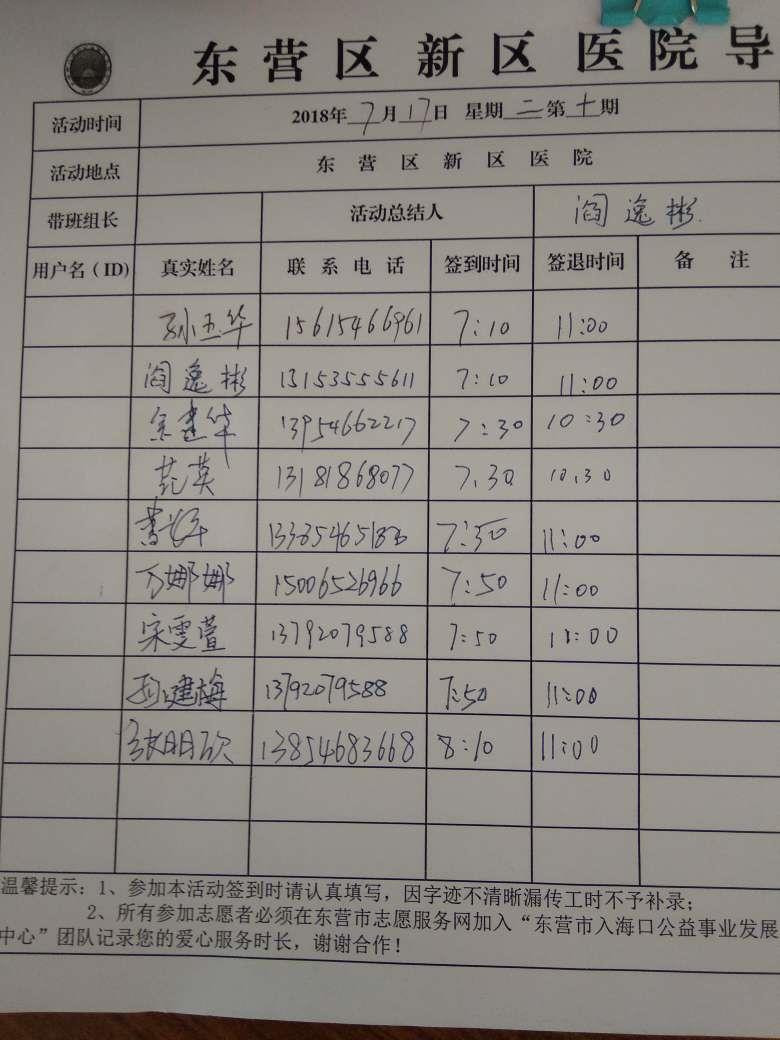 东营区新区医院导
活动时间 2018年7月17日 星期二第十期
活动地点 东营区新区医院
带班组长 活动总结人 阎逸彬
用户名（ID) 真实姓名 联系电话 签到时间 签退时间 备注
孙玉华 15615466961 7:10 11:00
阎逸彬 13153555611 7:10 11:00
余建华 13954662217 7:30 10:30
范英 13181868077 7.30 10.30
7:50 11:00
万娜娜 15006526966 7:50 11:00
宋雯萱 13792079588 7:50 11:00
孙建梅 13792079588 7:50 11:00
张明欣 13854683668 8:10 11:00
温馨提示：1、参加本活动签到时请认真填写，因字迹不清晰漏传工时不予补录；
2、所有参加志愿者必须在东营市志愿服务网加入“东营市入海口公益事业发展
中心”团队记录您的爱心服务时长，谢谢合作！